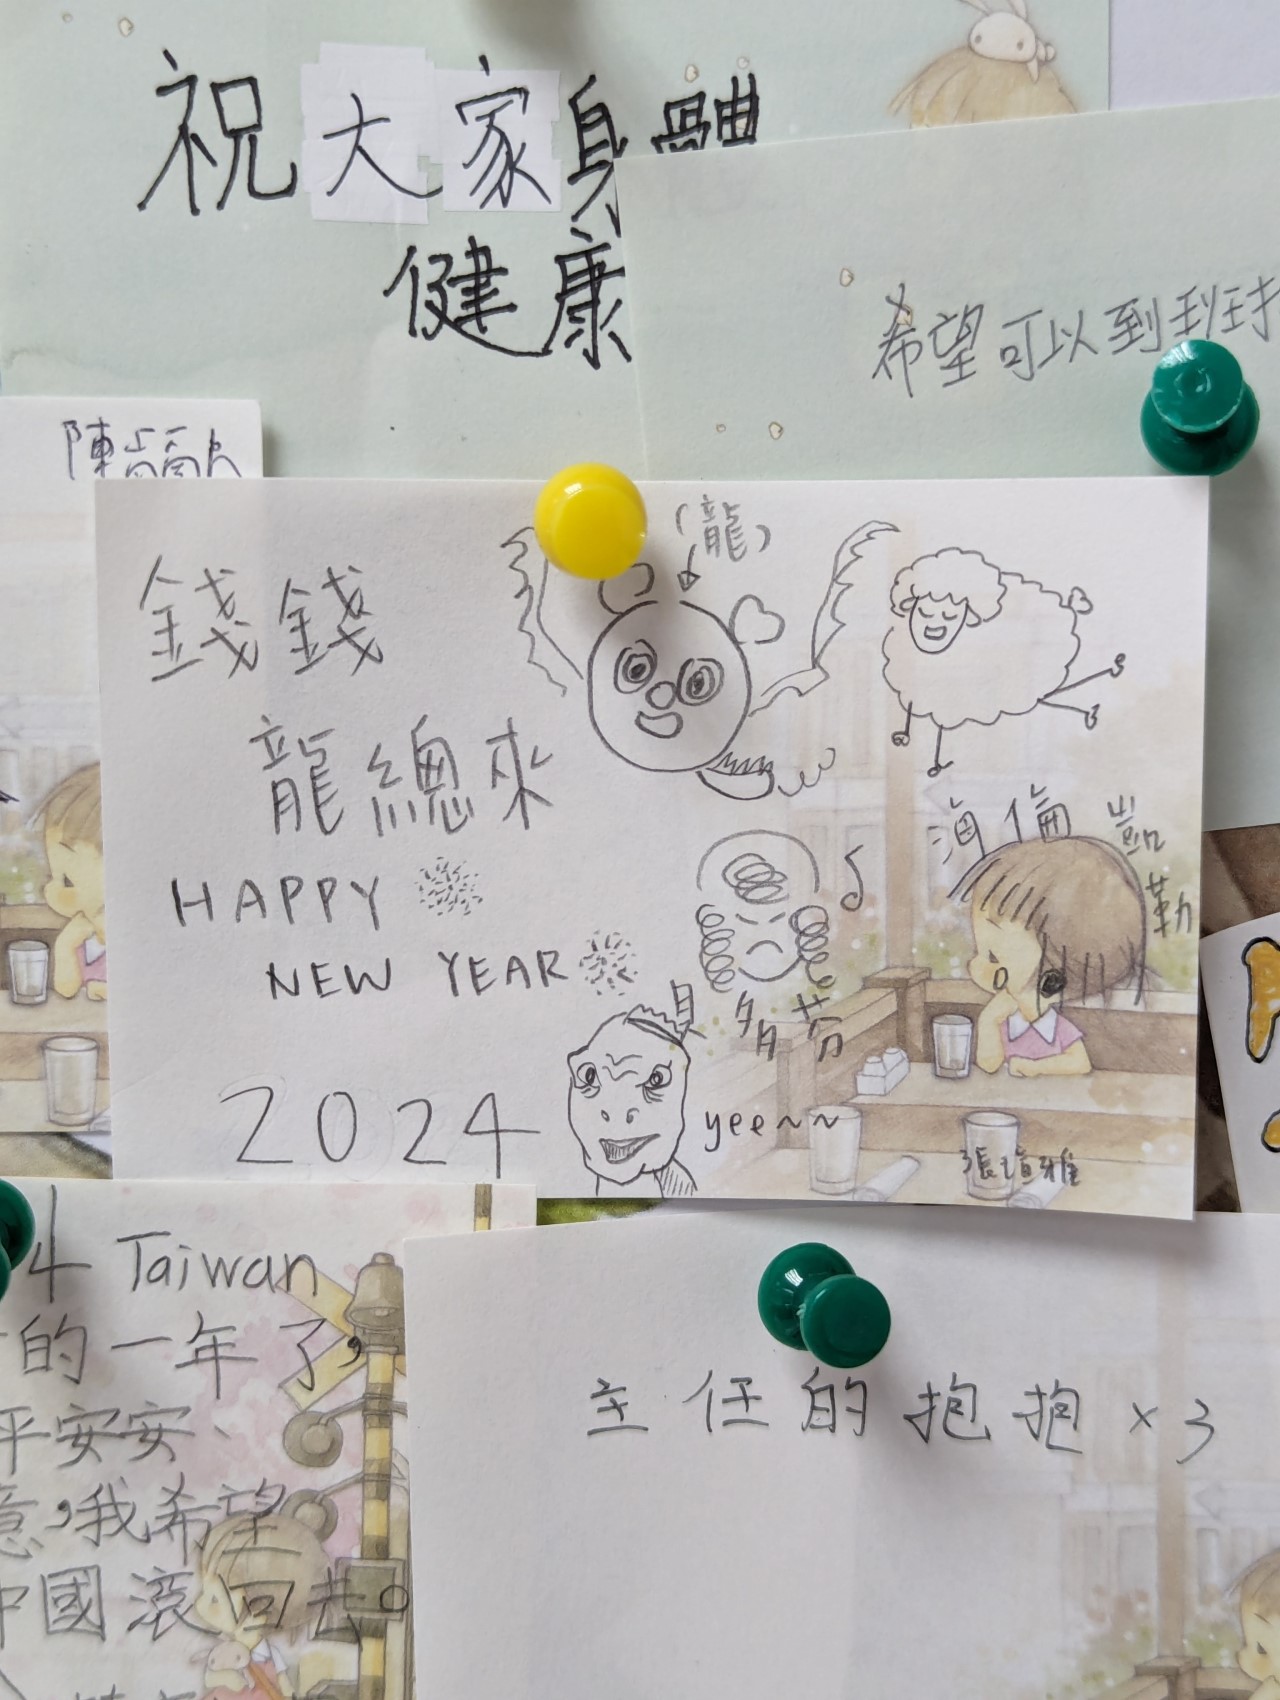 祝大家身體
健康
希望可以到班
陳
(龍)
錢錢
龍總來
HAPPY
NEW YEAR
2024
海倫
凱
勒
貝多芬
yee~~
張瑄雅
4 Taiwan
的一年了,
平安安、
意,我希望
中國滾回去。
主任的抱抱×3